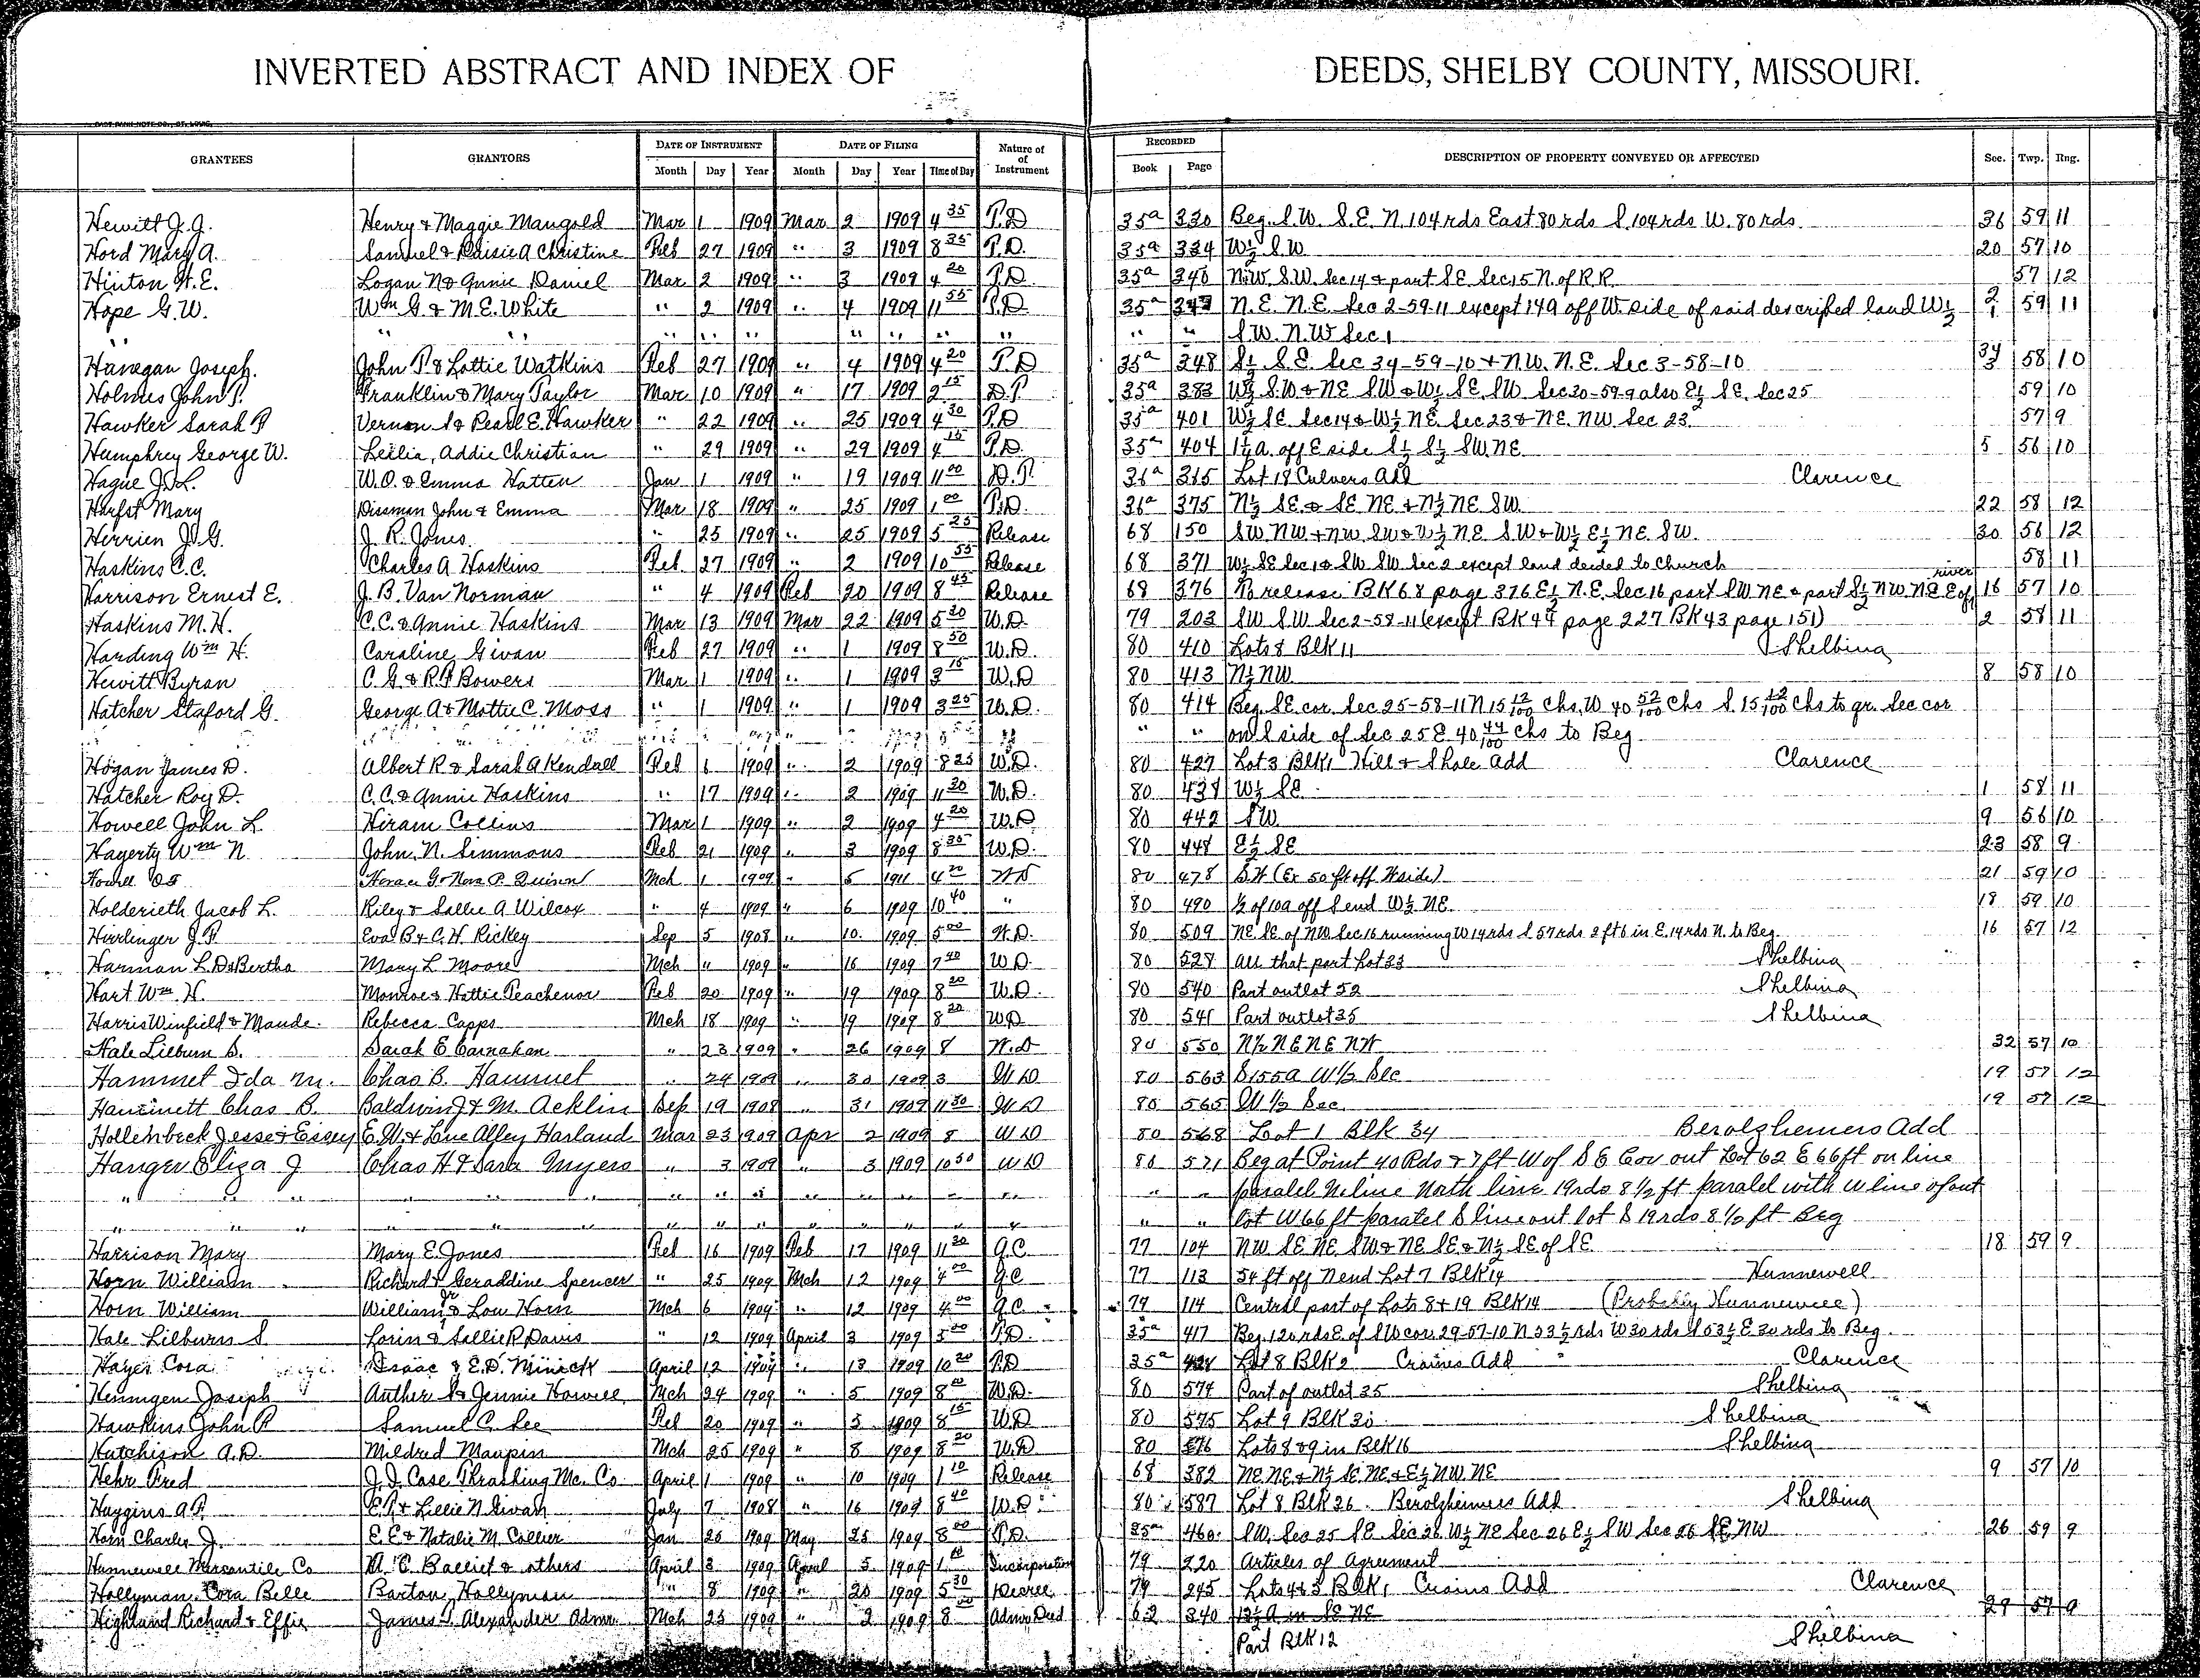 INVERTED ABSTRACT AND INDEX OF DEEDS, SHELBY COUNTY, MISSOURI.
GRANTEES GRANTORS DATE OF INSTRUMENT DATE OF FILING Nature of Instrument RECORDED DESCRIPTION OF PROPERTY CONVEYED OR AFFECTED Sec. Twp. Rng.
Month Day Year Month Day Year Time of Day Book Page
Hewitt J. J. Henry & Maggie Mangold Mar 1 1909 Mar 2 1909 4 35 T.D 35a 330 Beg. S.W. S.E. N. 104 rds East 80 rds S. 104 rds W. 80 rds. 36 59 11
Hord Mary A. Samuel & Daisie A Christine Feb 27 1909 " 3 1909 8 35 T.D. 35a 334 W½ S.W. 20 57 10
Hinton H. E. Logan N & Annie Daniel Mar 2 1909 " 3 1909 4 20 T.D 35a 340 N.W. S.W. Sec 14 & part S.E. Sec 15 N. of R.R. 57 12
Hope G. W. Wm G. & M. E. White " 2 1909 " 4 1909 11 55 T.D. 35a N.E. N.E. Sec 2-59-11 except 14a off W. side of said described land W½ 2 1 59 11
" " " " " " " " " " " " S.W. N.W Sec 1
Hanegan Joseph. John P. & Lottie Watkins Feb 27 1909 " 4 1909 4 20 T.D 35a 348 S½ S.E. Sec 34-59-10 & N.W. N.E. Sec 3-58-10 34 3 58 10
Holmes John P. Franklin & Mary Taylor Mar 10 1909 " 17 1909 2 15 D.T. 35a 383 W½ S.W & NE SW & W½ SE. SW. Sec 30-59-9 also E½ SE. Sec 25 59 10
Hawker Sarah F Vernon S & Pearl E. Hawker " 22 1909 " 25 1909 4 30 T.D 35a 401 W½ SE Sec 14 & W½ NE. Sec 23 & NE. NW Sec 23 57 9
Humphrey George W. Leilia, Addie Christian " 29 1909 " 29 1909 4 15 T.D. 35a 404 1½ a. off E side S½ S½ SW. NE 5 56 10
Hague J. L. W. O. & Emma Hatten Jan 1 1909 " 19 1909 11 00 D.T. 36a 315 Lot 18 Culvers Add Clarence
Harfst Mary Dissman John & Emma Mar 18 1909 " 25 1909 1 00 T.D. 36a 375 N½ SE & SE NE & N½ NE SW. 22 58 12
Herrien J. G. J. R. Jones " 25 1909 " 25 1909 5 25 Release 68 150 SW NW & NW SW & W½ NE SW & W½ E½ NE SW. 30 56 12
Haskins C. C. Charles A Haskins Feb 27 1909 " 2 1909 10 55 Release 68 371 W½ SE Sec 1 & SW SW Sec 2 except land deeded to Church 58 11
Harrison Ernest E. J. B. Van Norman " 4 1909 Feb 20 1909 8 45 Release 68 376 To release BK 68 page 376 E½ N.E. Sec 16 part SW NE & part S½ NW NE E of river 16 57 10
Haskins M. H. C. C. & Annie Haskins Mar 13 1909 Mar 22 1909 5 20 W.D. 79 203 SW SW Sec 2-58-11 (except BK 44 page 227 BK 43 page 151) 2 58 11
Harding Wm H. Caroline Givan Feb 27 1909 " 1 1909 8 50 W.D. 80 410 Lots 8 BLK 11 Shelbina
Hewitt Byran C. G. & R. F Bowers Mar 1 1909 " 1 1909 3 15 W.D 80 413 N½ NW. 8 58 10
Hatcher Staford G. George A & Mottie C. Moss " 1 1909 " 1 1909 3 25 W.D. 80 414 Beg. SE. cor. Sec 25-58-11 N 15 12/100 Chs. W 40 52/100 Chs S. 15 12/100 Chs to gr. Sec cor
" " on S side of Sec 25 E 40 44/100 Chs to Beg.
Hogan James D. Albert R & Sarah A Kendall Feb 6 1909 " 2 1909 8 25 W.D. 80 427 Lot 3 BLK 1 Hill & Shale Add Clarence
Hatcher Roy D. C. C. & Annie Haskins " 17 1909 " 2 1909 11 30 W.D. 80 437 W½ SE. 1 58 11
Howell John L. Hiram Collins Mar 1 1909 " 2 1909 4 20 W.D 80 442 SW. 9 56 10
Hagerty Wm N. John. N. Simmons Feb 21 1909 " 3 1909 8 35 W.D. 80 448 E½ SE 23 58 9
Howell O S Horace G & Nora P. Quinn Mch 1 1909 " 5 1911 4 20 WD 80 478 S.W (Ex 50 ft off W side) 21 59 10
Holderieth Jacob L. Riley & Sallie A Wilcox " 4 1909 " 6 1909 10 40 " 80 490 ½ of 10a off S end W½ NE. 18 59 10
Hirrlinger J. F. Eva B & C. H. Rickey Sep 5 1908 " 10. 1909 5 00 W.D. 80 509 NE. SE. of NW Sec 16 running W 14 rds S 57 rds 2 ft 6 in E. 14 rds N. to Beg. 16 57 12
Harman L. D & Bertha Mary L. Moore Mch " 1909 " 16 1909 7 40 W.D. 80 527 All that part Lot 33 Shelbina
Hart Wm. H. Monroe & Hattie Peachenor Feb 20 1909 " 19 1909 8 20 W.D. 80 540 Part outlot 52 Shelbina
Harris Winfield & Maude. Rebecca Capps Mch 18 1909 " 19 1909 8 20 W.D 80 541 Part outlot 35 Shelbina
Hale Lilburn S. Sarah E Carnahan " 23 1909 " 26 1909 8 W.D 80 550 N½ NE NE NW 32 57 10
Hammet Ida M. Chas B. Hammet " 24 1909 " 30 1909 3 WD 80 563 S 155a W½ Sec 19 57 12
Hammett Chas B. Baldwin J & M. Acklin Sep 19 1908 " 31 1909 11 30 WD 80 565 W½ Sec. 19 57 12
Hollenbeck Jesse & Essey E. W. & Love Alfey Harland Mar 23 1909 Apr 2 1909 8 WD 80 568 Lot 1 Blk 34 Berolzhemers Add
Hanger Eliza J Chas H & Sara Myers " 3 1909 " 3 1909 10 30 WD 80 571 Beg at Point 40 Rds & 7 ft W of S E Cor out Lot 62 E 66 ft on line
" " " " " " " " " " " " " " " paralel N line North line 19 rds 8½ ft paralel with W line of out
" " " " " " " " " " " " " " " lot W 66 ft paralel S line out lot S 19 rds 8½ ft Beg
Harrison Mary Mary E. Jones Feb 16 1909 Feb 17 1909 11 30 Q.C. 77 104 NW SE NE SW & NE SE & N½ SE of SE. 18 59 9
Horn William Richard & Geraddine Spencer " 25 1909 Mch 12 1909 4 00 Q.C 77 113 54 ft off N end Lot 7 BLK 14 Hunnewell
Horn William William Jr & Lou Horn Mch 6 1909 " 12 1909 4 00 Q.C. 79 114 Central part of Lots 8 & 19 BLK 14 (Probably Hunnewell)
Hale Lilburn S. Lorin & Sallie R. Davis " 12 1909 April 3 1909 3 00 T.D. 35a 417 Beg. 120 rds E. of SW cor. 29-57-10 N 53½ rds W 30 rds S 53½ E 30 rds to Beg.
Hayes Cora Isaac & E. D. Minick April 12 1909 " 13 1909 10 20 T.D 35a 424 Lot 8 BLK 2 Crains Add Clarence
Hennigen Joseph Auther S & Jennie Howell Mch 24 1909 " 5 1909 8 00 W.D. 80 574 Part of outlot 35 Shelbina
Hawkins John R Samuel C. Lee Feb 20 1909 " 3 1909 8 15 W.D 80 575 Lot 9 BLK 30 Shelbina
Hutchison A. D. Mildred Maupin Mch 25 1909 " 8 1909 8 20 W.D. 80 576 Lots 8 & 9 in BLK 16 Shelbina
Hehr Fred J. I. Case Thrashing Mc. Co. April 1 1909 " 10 1909 1 10 Release 68 382 NE. NE & N½ SE. NE & E½ NW. NE 9 57 10
Huggins A. F. E. T. & Lillie N. Givan July 7 1908 " 16 1909 8 40 W.D. 80 587 Lot 8 BLK 36. Berolzheimers Add Shelbina
Horn Charles J. E. E & Natalie M. Collier Jan 20 1909 May 25 1909 8 00 T.D. 35a 460 SW. Sec 25 SE. Sec 26 W½ NE Sec 26 E½ SW Sec 26 SE. NW 26 59 9
Hunnewell Mercantile Co M. C. Balliet & others April 3 1909 April 5 1909 1 10 Incorporation 79 220 Articles of Agreement
Hollyman Cora Belle Barton Hollyman " 8 1909 " 20 1909 5 30 Decree 79 245 Lots 4 & 5 BLK 1 Crains Add Clarence
Highland Richard & Effie James T. Alexander Admr. Mch 23 1909 " 2 1909 8 00 Admr. Deed 62 340 12½ A in SE NE 29 57 9
Part BLK 12 Shelbina